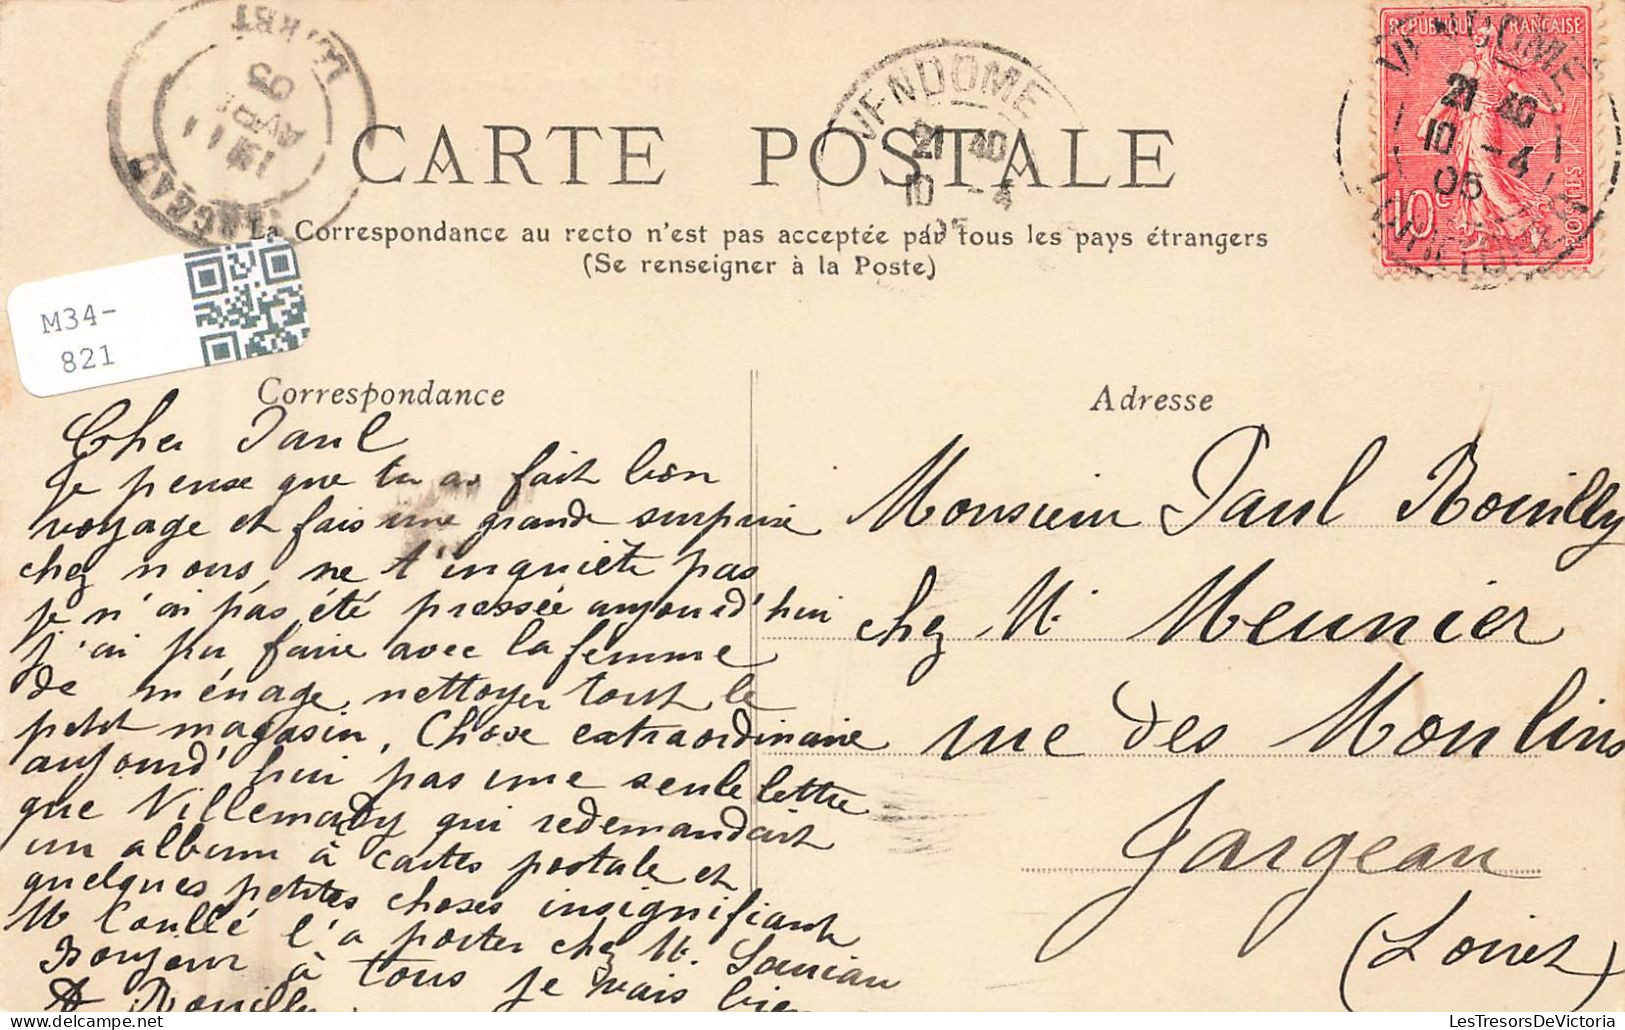 CARTE POSTALE
La Correspondance au recto n'est pas acceptée par tous les pays étrangers
(Se renseigner à la Poste)
VENDOME
21 40
10 -4
05
REPUBLIQUE FRANÇAISE
10c
POSTES
VENDOME
21 40
10 -4
05
LOIRET
M34-
821
Correspondance
Cher Paul
Je pense que tu as fait bon
voyage et fais une grande surprise
chez nous, ne t'inquiète pas
je n'ai pas été pressée aujourd'hui
j'ai pu faire avec la femme
de ménage nettoyer tout le
petit magasin, Chose extraordinaire
aujourd'hui pas une seule lettre
que Villemady qui redemandait
un album à cartes postale et
quelques petites choses insignifiant
M Coullé l'a porter chez M.
Bonjour à tous je vais bien
A Rouilly.
Adresse
Monsieur Paul Rouilly
chez M. Meunier
rue des Moulins
Jargeau
(Loiret)
LesTresorsDeVictoria